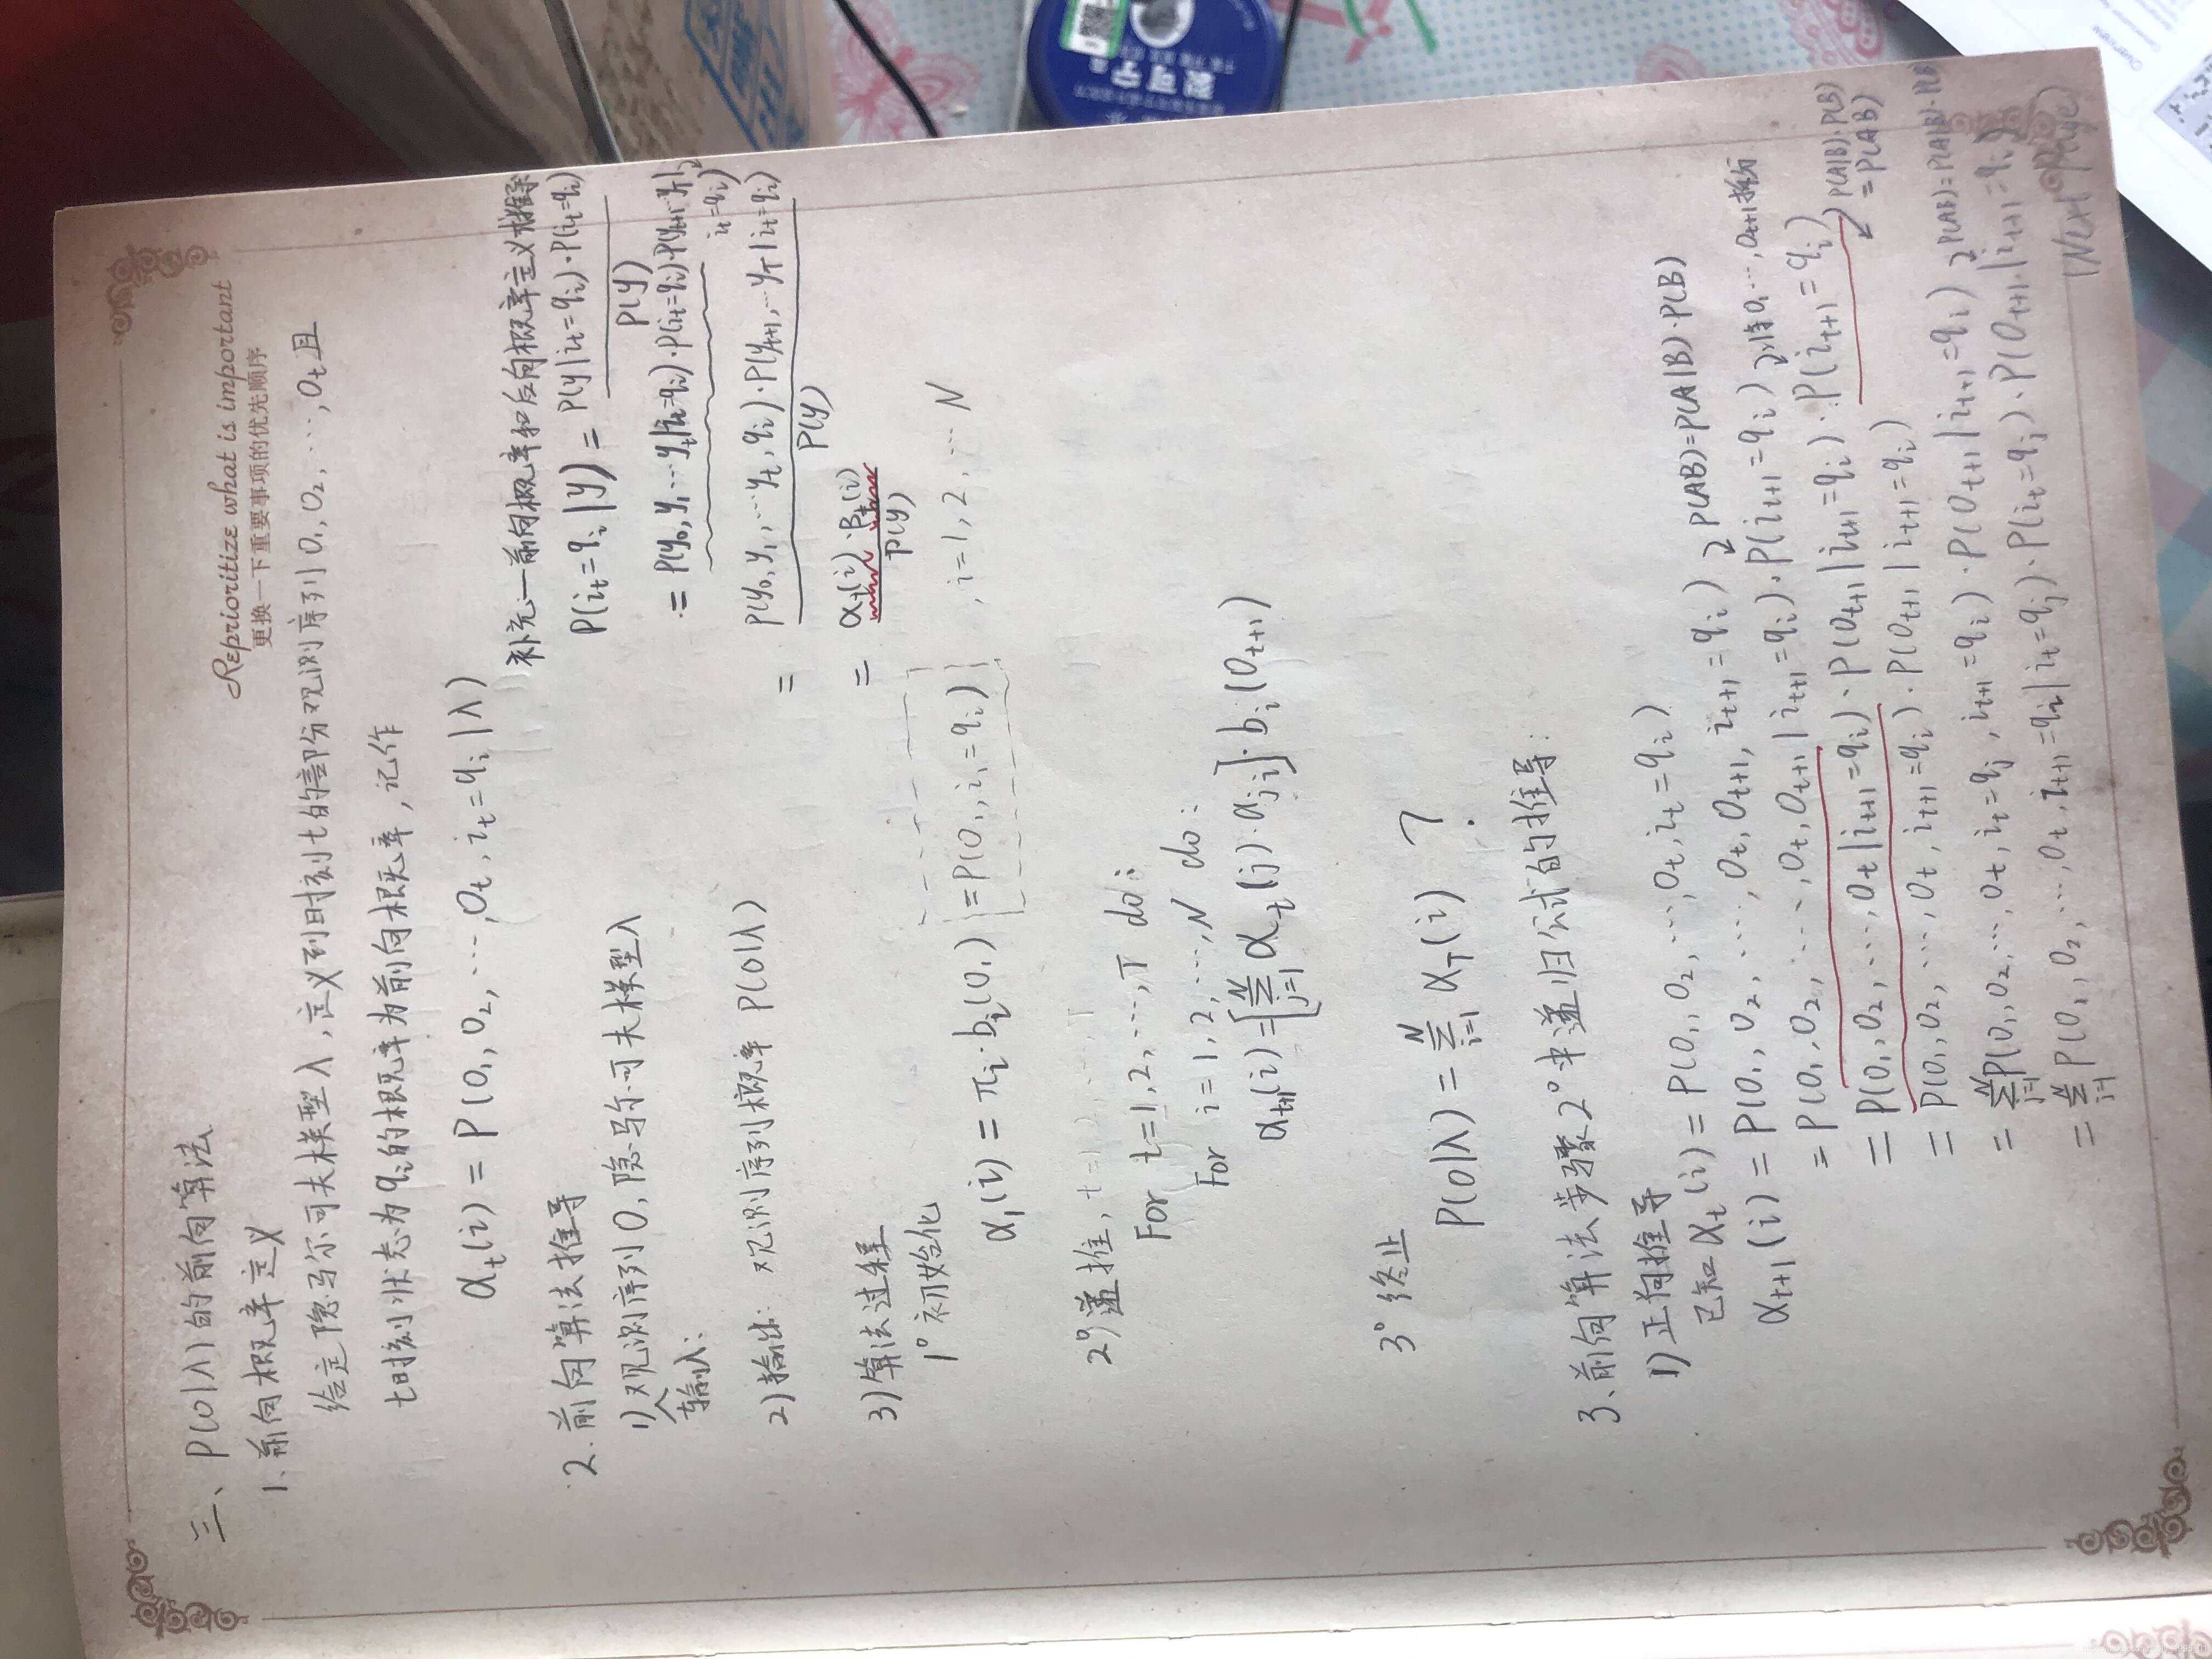 Reprioritize what is important
更换一下重要事项的优先顺序
三、P(O|λ)的前向算法
1、前向概率定义
给定隐马尔可夫模型λ,定义到时刻t的部分观测序列O₁,O₂,⋯,Oₜ且
t时刻状态为qᵢ的概率为前向概率,记作
αₜ(i)=P(O₁,O₂,⋯,Oₜ,iₜ=qᵢ|λ)
补充:—前向概率和后向概率定义推导
P(iₜ=qᵢ|y)=P(y|iₜ=qᵢ)·P(iₜ=qᵢ)/P(y)
=P(y₀,y₁,⋯yₜ|iₜ=qᵢ)·P(iₜ=qᵢ)·P(yₜ₊₁⋯y_T|iₜ=qᵢ)
=P(y₀,y₁,⋯yₜ,qᵢ)·P(yₜ₊₁,⋯y_T|iₜ=qᵢ)/P(y)
=αₜ(i)·βₜ(i)/P(y)
2.前向算法推导
1)输入:观测序列O,隐马尔可夫模型λ
2)输出:观测序列概率P(O|λ)
3)算法过程
1° 初始化
α₁(i)=πᵢ·bᵢ(O₁)=P(O₁,i₁=qᵢ),i=1,2,⋯N
2° 递推,
For t=1,2,⋯,T do:
For i=1,2,⋯,N do:
αₜ₊₁(i)=[∑ⱼ₌₁ᴺ αₜ(j)·aⱼᵢ]·bᵢ(Oₜ₊₁)
3° 终止
P(O|λ)=∑ᵢ₌₁ᴺ α_T(i) ?
3、前向算法步骤2°中递归公式的推导:
1)正向推导
已知αₜ(i)=P(O₁,O₂,⋯,Oₜ,iₜ=qᵢ)
αₜ₊₁(i)=P(O₁,O₂,⋯,Oₜ,Oₜ₊₁,iₜ₊₁=qᵢ) P(AB)=P(A|B)·P(B)
=P(O₁,O₂,⋯,Oₜ,Oₜ₊₁|iₜ₊₁=qᵢ)·P(iₜ₊₁=qᵢ) O₁⋯,Oₜ₊₁拆
=P(O₁,O₂,⋯,Oₜ|iₜ₊₁=qᵢ)·P(Oₜ₊₁|iₜ₊₁=qᵢ)·P(iₜ₊₁=qᵢ) P(A|B)·P(B)=P(AB)
=P(O₁,O₂,⋯,Oₜ,iₜ₊₁=qᵢ)·P(Oₜ₊₁|iₜ₊₁=qᵢ)
=∑ᵢ₌₁ᴺ P(O₁,O₂,⋯,Oₜ,iₜ=qⱼ,iₜ₊₁=qᵢ)·P(Oₜ₊₁|iₜ₊₁=qᵢ) P(AB)=P(A|B)·P(B
=∑ᵢ₌₁ᴺ P(O₁,O₂,⋯,Oₜ,iₜ₊₁=qᵢ|iₜ=qⱼ)·P(iₜ=qⱼ)·P(Oₜ₊₁|iₜ₊₁=qᵢ)
(Next Page)